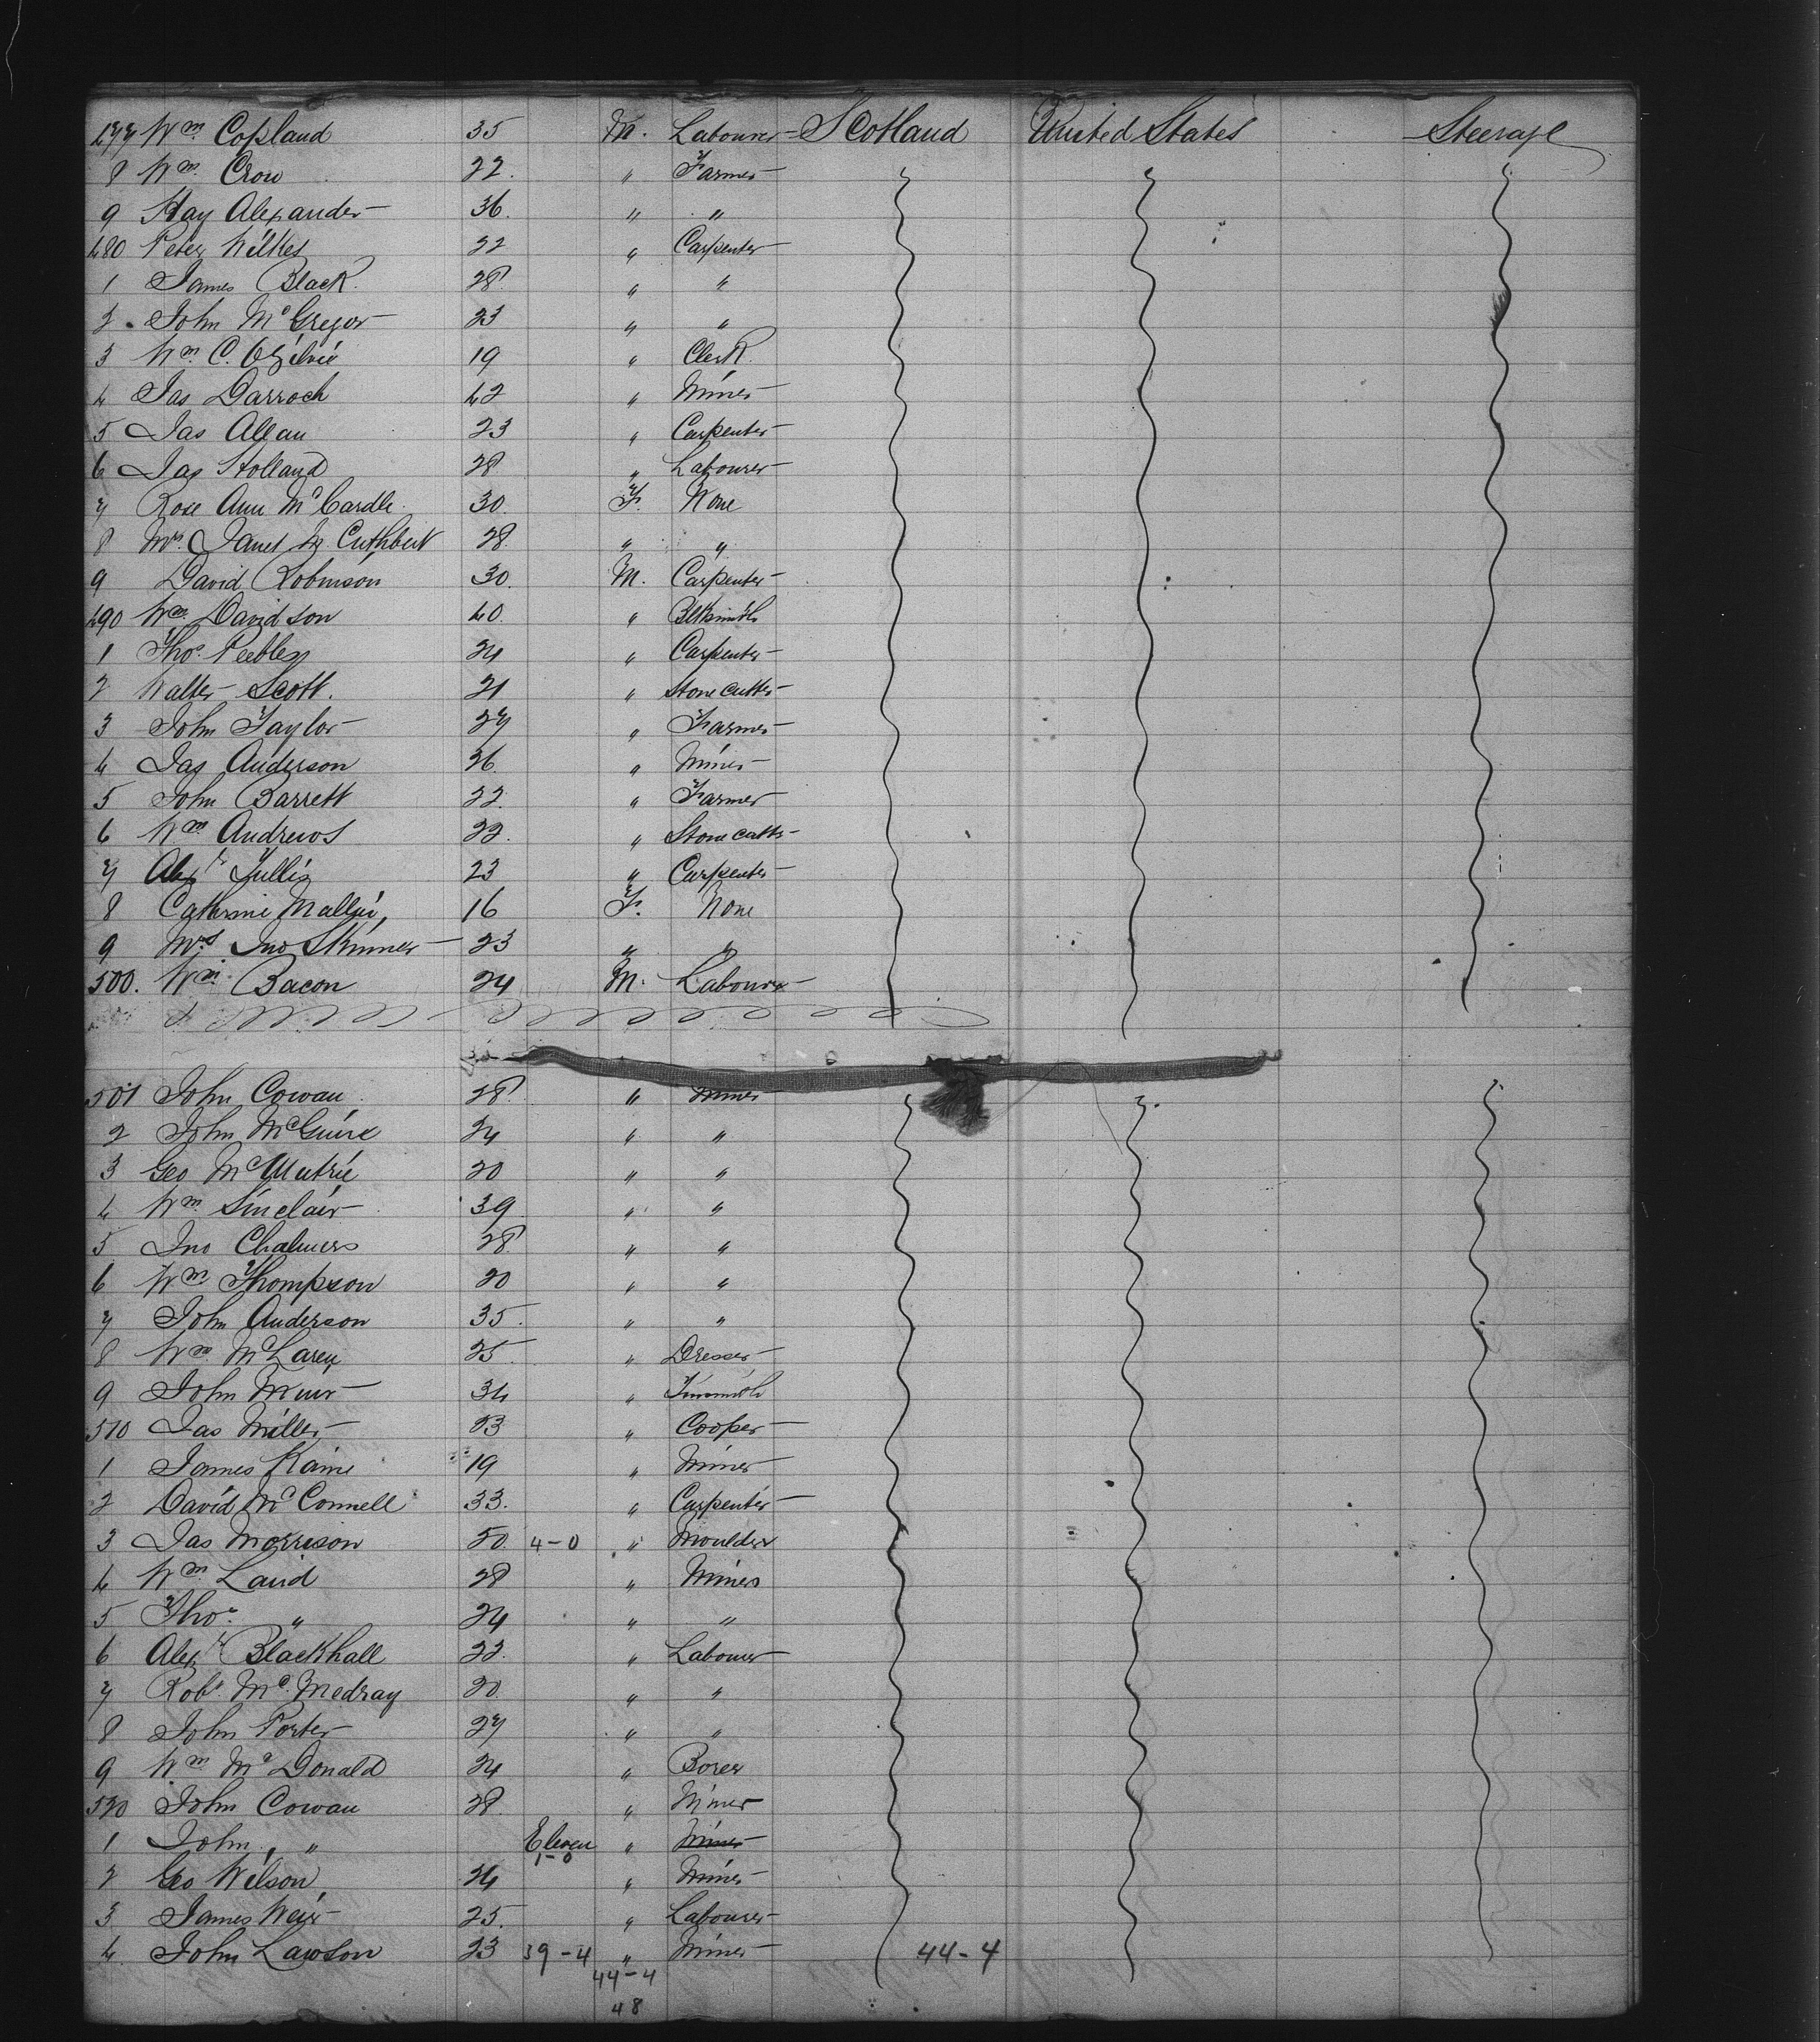 477 Wm Copland 35 M. Labourer Scotland United States Steerage
8 Wm Crow 22. " Farmer
9 Hay Alexander 36. " "
480 Peter Wilkes 22 " Carpenter
1 James Black. 28 " "
2 John McGregor 23 " "
3 Wm C. Ogilvie 19 " Clerk.
4 Jas Darroch 42 " Miner
5 Jas Allan 23 " Carpenter
6 Jas Holland 28 " Labourer
7 Rose Ann McCardle 30. F. None
8 Mrs. Janet Cuthbert 28. " "
9 David Robinson 30. M. Carpenter
490 Wm Davidson 40. " Blksmith
1 Thos. Peebles 24 " Carpenter
2 Walter Scott. 21 " Stone cutter
3 John Taylor 27 " Farmer
4 Jas Anderson 26. " Miner
5 John Barrett 22. " Farmer
6 Wm Andrews 22. " Stone cutter
7 Alexr Tullis 23 " Carpenter
8 Catherine 16 F. None
9 Mrs Jno Skinner 23 " "
500. Wm Bacon 24 M. Labourer
501 John Cowan 28 " Miner
2 John McGuire 24 " "
3 Geo McMutrie 20 " "
4 Wm Sinclair 39 " "
5 Jno Chalmers 28. " "
6 Wm Thompson 20 " "
7 John Anderson 35. " "
8 Wm McLaren 25. " Dresser
9 John Muir 34 " Tinsmith
510 Jas Miller 23 " Cooper
1 James Kaine 19 " Miner
2 David McConnell 33. " Carpenter
3 Jas Morrison 50. 4-0 " Moulder
4 Wm Laird 28 " Miners
5 Thos. " 24 " "
6 Alexr Blackhall 22. " Labourer
7 Robt. Mc.Medray 20. " "
8 John Porter 27 " "
9 Wm McDonald 24 " Borer
520 John Cowan 28. " Miner
1 John " Eleven " Miner
1-0
2 Geo Wilson 24 " Miner
3 James Weir 25. " Labourer
4 John Lawson 23 39-4 " Miner 44-4
44-4
48